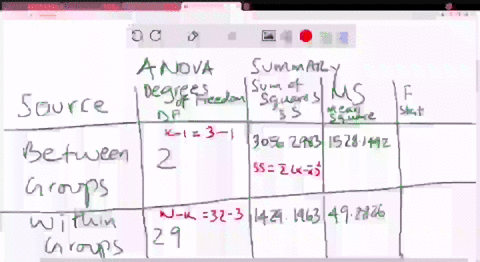 ANOVA SUMMARY
Source
Degrees of Freedom DF
Sum of Squares SS
MS mean square
F stat
Between Groups
K-1 = 3-1
2
3056.2983
1528.1492
Within Groups
N-K = 32-3
29
1429.1963
49.2826